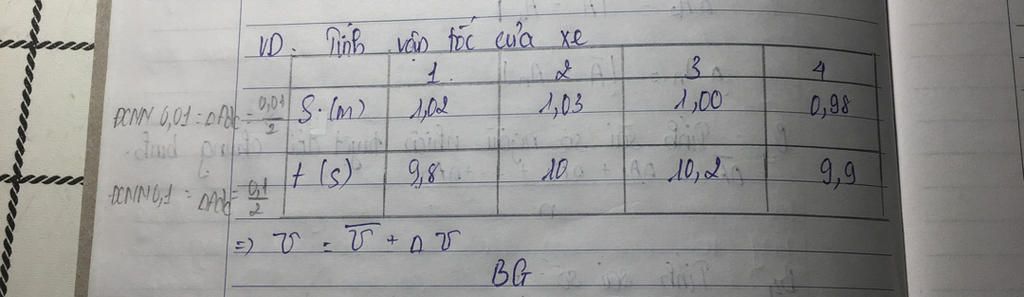 VD. Tính vận tốc của xe
1. 2 3 4
ĐCNN 0,01 = ΔAdc = 0,01/2 S.(m) 1,02 1,03 1,00 0,98
ĐCNN 0,1 = ΔAdc = 0,1/2 t (s) 9,8 10 10,2 9,9
=> v = v̅ + Δ v
BG